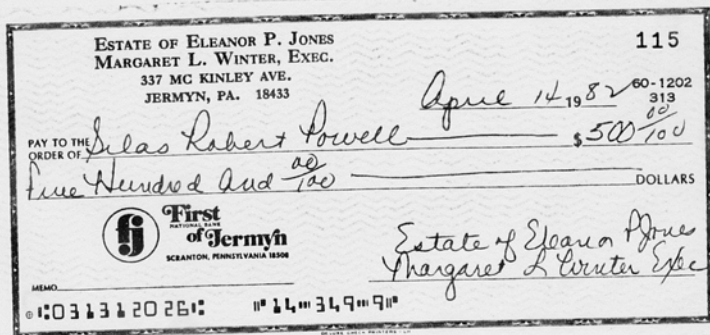 ESTATE OF ELEANOR P. JONES
MARGARET L. WINTER, EXEC.
337 MC KINLEY AVE.
JERMYN, PA. 18433
115
April 14 1982
60-1202
313
PAY TO THE ORDER OF Silas Robert Powell $500 00/100
Five Hundred and 00/100 DOLLARS
fj First
NATIONAL BANK
of Jermyn
SCRANTON, PENNSYLVANIA 18508
Estate of Eleanor P Jones
Margaret L Winter Exec
MEMO
⑆031312026⑆ ⑈14⑉349⑉9⑈